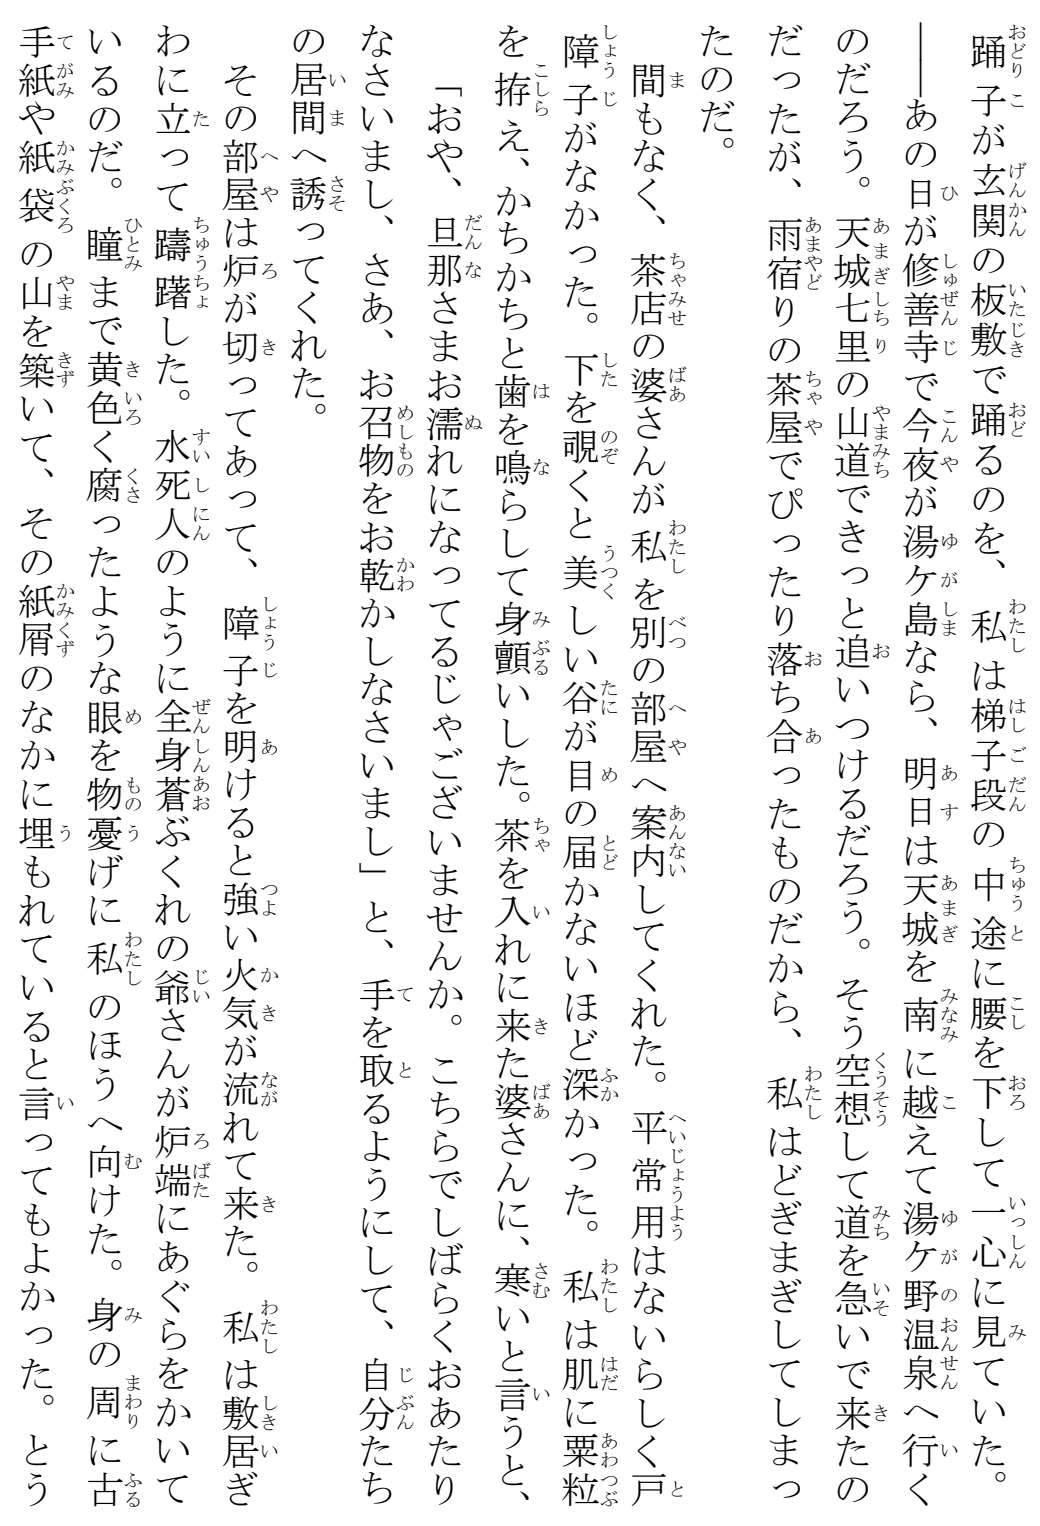 踊子が玄関の板敷で踊るのを、私は梯子段の中途に腰を下して一心に見ていた。
――あの日が修善寺で今夜が湯ケ島なら、明日は天城を南に越えて湯ケ野温泉へ行く
のだろう。天城七里の山道できっと追いつけるだろう。そう空想して道を急いで来たの
だったが、雨宿りの茶屋でぴったり落ち合ったものだから、私はどぎまぎしてしまっ
たのだ。
間もなく、茶店の婆さんが私を別の部屋へ案内してくれた。平常用はないらしく戸
障子がなかった。下を覗くと美しい谷が目の届かないほど深かった。私は肌に粟粒
を拵え、かちかちと歯を鳴らして身顫いした。茶を入れに来た婆さんに、寒いと言うと、
「おや、旦那さまお濡れになってるじゃございませんか。こちらでしばらくおあたり
なさいまし、さあ、お召物をお乾かしなさいまし」と、手を取るようにして、自分たち
の居間へ誘ってくれた。
その部屋は炉が切ってあって、障子を明けると強い火気が流れて来た。私は敷居ぎ
わに立って躊躇した。水死人のように全身蒼ぶくれの爺さんが炉端にあぐらをかいて
いるのだ。瞳まで黄色く腐ったような眼を物憂げに私のほうへ向けた。身の周に古
手紙や紙袋の山を築いて、その紙屑のなかに埋もれていると言ってもよかった。とう